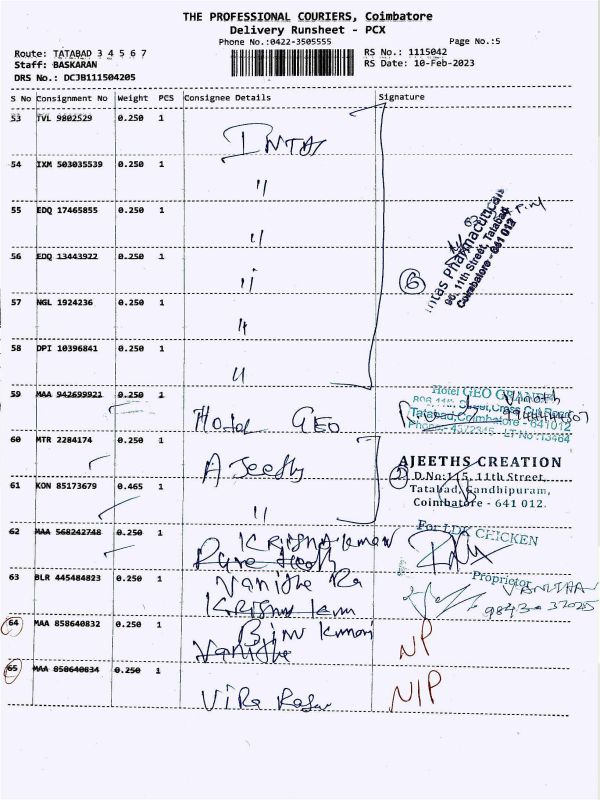 THE PROFESSIONAL COURIERS, Coimbatore
Delivery Runsheet - PCX
Phone No.:0422-3505555
Page No.:5
Route: TATABAD 3 4 5 6 7
RS No.: 1115042
Staff: BASKARAN
RS Date: 10-Feb-2023
DRS No.: DCJB111504205
S No Consignment No Weight PCS Consignee Details Signature
53 TVL 9802529 0.250 1
INTAS
54 IXM 503035539 0.250 1
"
55 EDQ 17465855 0.250 1
"
56 EDQ 13443922 0.250 1
"
6
Intas Pharmaceuticals
96, 11th Street, Tatabad
Coimbatore - 641 012
57 NGL 1924236 0.250 1
"
58 DPI 10396841 0.250 1
"
59 MAA 942699921 0.250 1
Hotel GEO
Hotel GEO
Tatabad, Coimbatore - 641012
60 MTR 2284174 0.250 1
AJEETHS CREATION
2
D.No:115, 11th Street,
Tatabad, Gandhipuram,
Coimbatore - 641 012.
61 KON 85173679 0.465 1
"
62 MAA 568242748 0.250 1
For LDK CHICKEN
Proprietor
63 BLR 445484823 0.250 1
64 MAA 858640832 0.250 1
NP
65 MAA 858640834 0.250 1
N/P